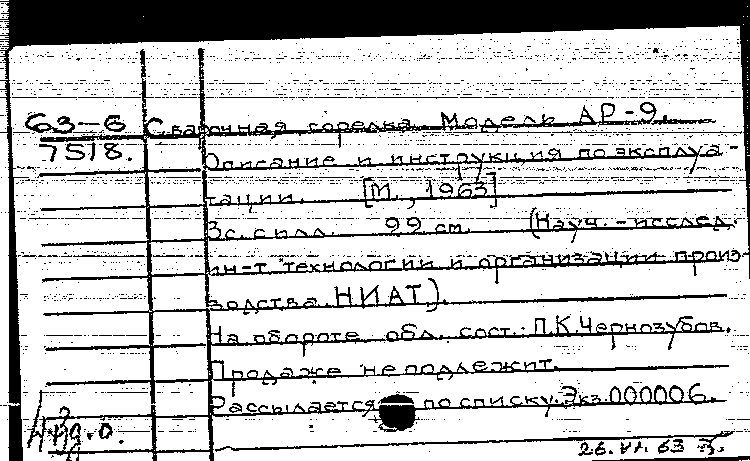 63-6 Сварочная горелка. Модель АР-9.
7518. Описание и инструкция по эксплуа-
тации. [М., 1963]
3 с. с илл. 29 см. (Науч.-исслед.
ин-т технологии и организации произ-
водства. НИАТ.).
На обороте обл. сост.: П.К. Чернозубов.
Продаже не подлежит.
Рассылается по списку. Экз. 000006.
26.VI.63